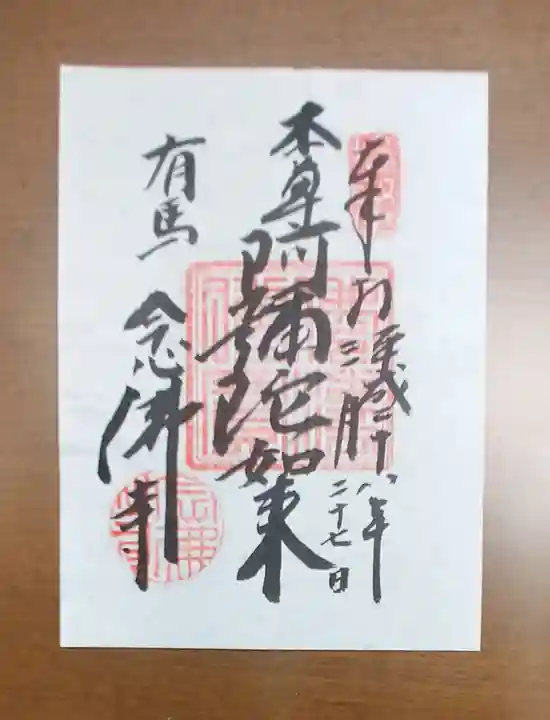 奉拝
平成二十八年
二月二十七日
本尊阿彌陀如来
有馬
念佛寺